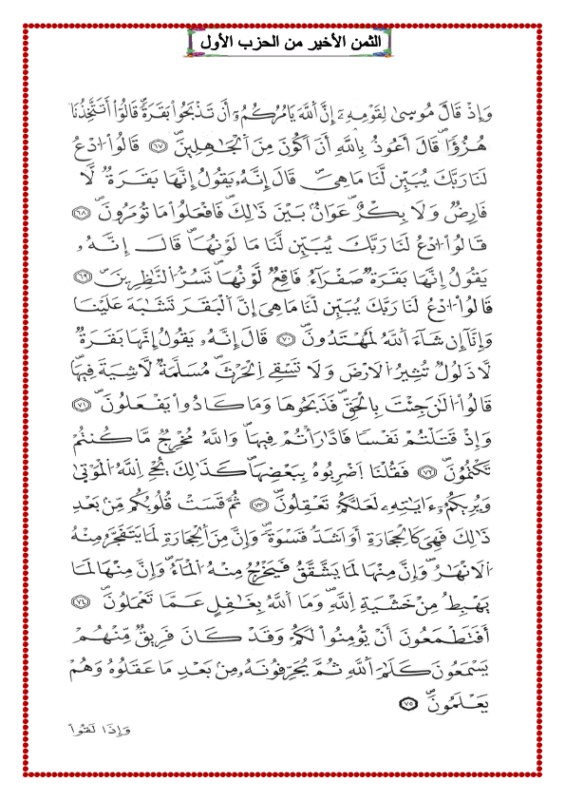 الثمن الأخير من الحزب الأول
وَإِذْ قَالَ مُوسِىٰ لِقَوْمِهِۦٓ إِنَّ اَللَّهَ يَامُرُكُمُۥٓ أَن تَذْبَحُواْ بَقَرَةٗۖ قَالُوٓاْ أَتَتَّخِذُنَا
هُزُؤاٗۖ قَالَ أَعُوذُ بِاللَّهِ أَنَ اَكُونَ مِنَ اَلْجَٰهِلِينَۖ ٦٧ قَالُواْ اُدْعُ
لَنَا رَبَّكَ يُبَيِّن لَّنَا مَا هِيَۖ قَالَ إِنَّهُۥ يَقُولُ إِنَّهَا بَقَرَةٞ لَّا
فَارِضٞ وَلَا بِكْرٌ عَوَانُۢ بَيْنَ ذَٰلِكَۖ فَافْعَلُواْ مَا تُومَرُونَۖ ٦٨
قَالُواْ اُدْعُ لَنَا رَبَّكَ يُبَيِّن لَّنَا مَا لَوْنُهَاۖ قَالَ إِنَّهُۥ
يَقُولُ إِنَّهَا بَقَرَةٞ صَفْرَآءُ فَاقِعٞ لَّوْنُهَا تَسُرُّ اُلنَّٰظِرِينَۖ ٦٩
قَالُواْ اُدْعُ لَنَا رَبَّكَ يُبَيِّن لَّنَا مَا هِيَ إِنَّ اَلْبَقَرَ تَشَٰبَهَ عَلَيْنَا
وَإِنَّآ إِن شَآءَ اَللَّهُ لَمُهْتَدُونَۖ ٧٠ قَالَ إِنَّهُۥ يَقُولُ إِنَّهَا بَقَرَةٞ
لَّا ذَلُولٞ تُثِيرُ اُلَارْضَ وَلَا تَسْقِے اِلْحَرْثَ مُسَلَّمَةٞ لَّا شِيَةَ فِيهَاۖ
قَالُواْ اُلَٰنَ جِئْتَ بِالْحَقِّۖ فَذَبَحُوهَا وَمَا كَادُواْ يَفْعَلُونَۖ ٧١
وَإِذْ قَتَلْتُمْ نَفْساٗ فَادَّٰرَٰتُمْ فِيهَاۖ وَاللَّهُ مُخْرِجٞ مَّا كُنتُمْ
تَكْتُمُونَۖ ٧٢ فَقُلْنَا اَضْرِبُوهُ بِبَعْضِهَاۖ كَذَٰلِكَ يُحْيِ اِللَّهُ اُلْمَوْتَىٰ
وَيُرِيكُمُۥٓ ءَايَٰتِهِۦ لَعَلَّكُمْ تَعْقِلُونَۖ ٧٣ ثُمَّ قَسَتْ قُلُوبُكُم مِّنۢ بَعْدِ
ذَٰلِكَ فَهِيَ كَالْحِجَارَةِ أَوَ اَشَدُّ قَسْوَةٗۖ وَإِنَّ مِنَ اَلْحِجَارَةِ لَمَا يَتَفَجَّرُ مِنْهُ
اُلَانْهَٰرُۖ وَإِنَّ مِنْهَا لَمَا يَشَّقَّقُ فَيَخْرُجُ مِنْهُ اُلْمَآءُۖ وَإِنَّ مِنْهَا لَمَا
يَهْبِطُ مِنْ خَشْيَةِ اِللَّهِۖ وَمَا اَللَّهُ بِغَٰفِلٍ عَمَّا تَعْمَلُونَۖ ٧٤
أَفَتَطْمَعُونَ أَنْ يُّومِنُواْ لَكُمْ وَقَدْ كَانَ فَرِيقٞ مِّنْهُمْ
يَسْمَعُونَ كَلَٰمَ اَللَّهِ ثُمَّ يُحَرِّفُونَهُۥ مِنۢ بَعْدِ مَا عَقَلُوهُ وَهُمْ
يَعْلَمُونَۖ ٧٥
وَإِذَا لَقُواْ